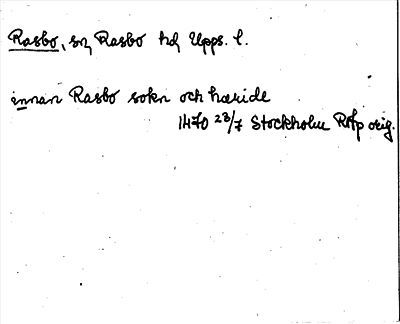 Rasbo, sn, Rasbo hd, Upps. l.
innan Rasbo sokn och hæride
1470 23/7 Stockholm RAp orig.